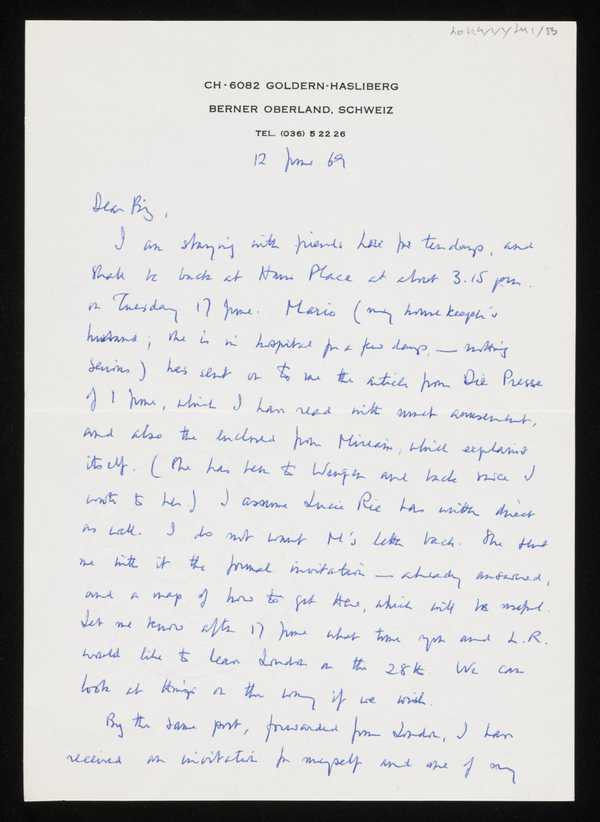 CH-6082 GOLDERN-HASLIBERG
BERNER OBERLAND, SCHWEIZ
TEL. (036) 5 22 26
12 June 69
Dear
I am staying with friends here for ten days, and
shall be back at Hans Place at about 3.15 pm.
on Tuesday 17 June. Mario (my housekeeper's
husband; she is in hospital for a few days, — nothing
serious) has sent on to me the article from Die Presse
of 1 June, which I have read with much amusement,
and also the enclosed from Miriam, which explains
itself. (She has been to Wengen and back since I
wrote to her) I assume Lucie Rie has written direct
as well. I do not want M's letter back. She sent
me with it the formal invitation — already answered,
and a map of how to get there, which will be useful.
Let me know after 17 June what time you and L.R.
would like to leave London on the 28th. We can
look at things on the way if we wish.
By the same post, forwarded from London, I have
received an invitation for myself and one of my